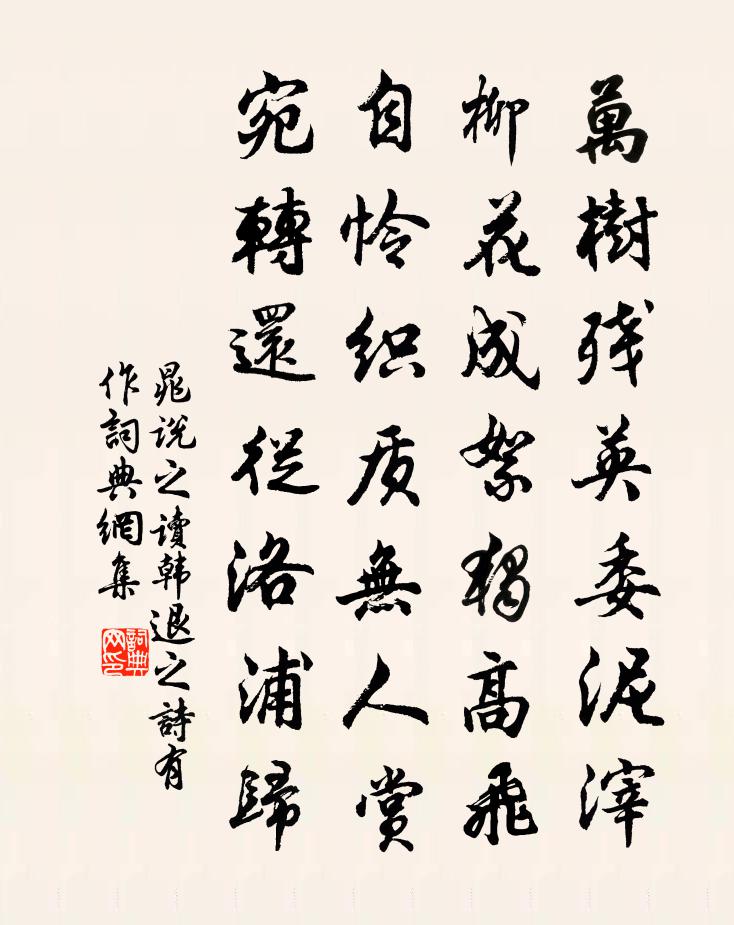 萬樹残英委泥滓
柳花成絮獨高飛
自怜织质無人赏
宛轉還從洛浦歸
晁说之读韩退之詩有
作詞典網集
詞典网印